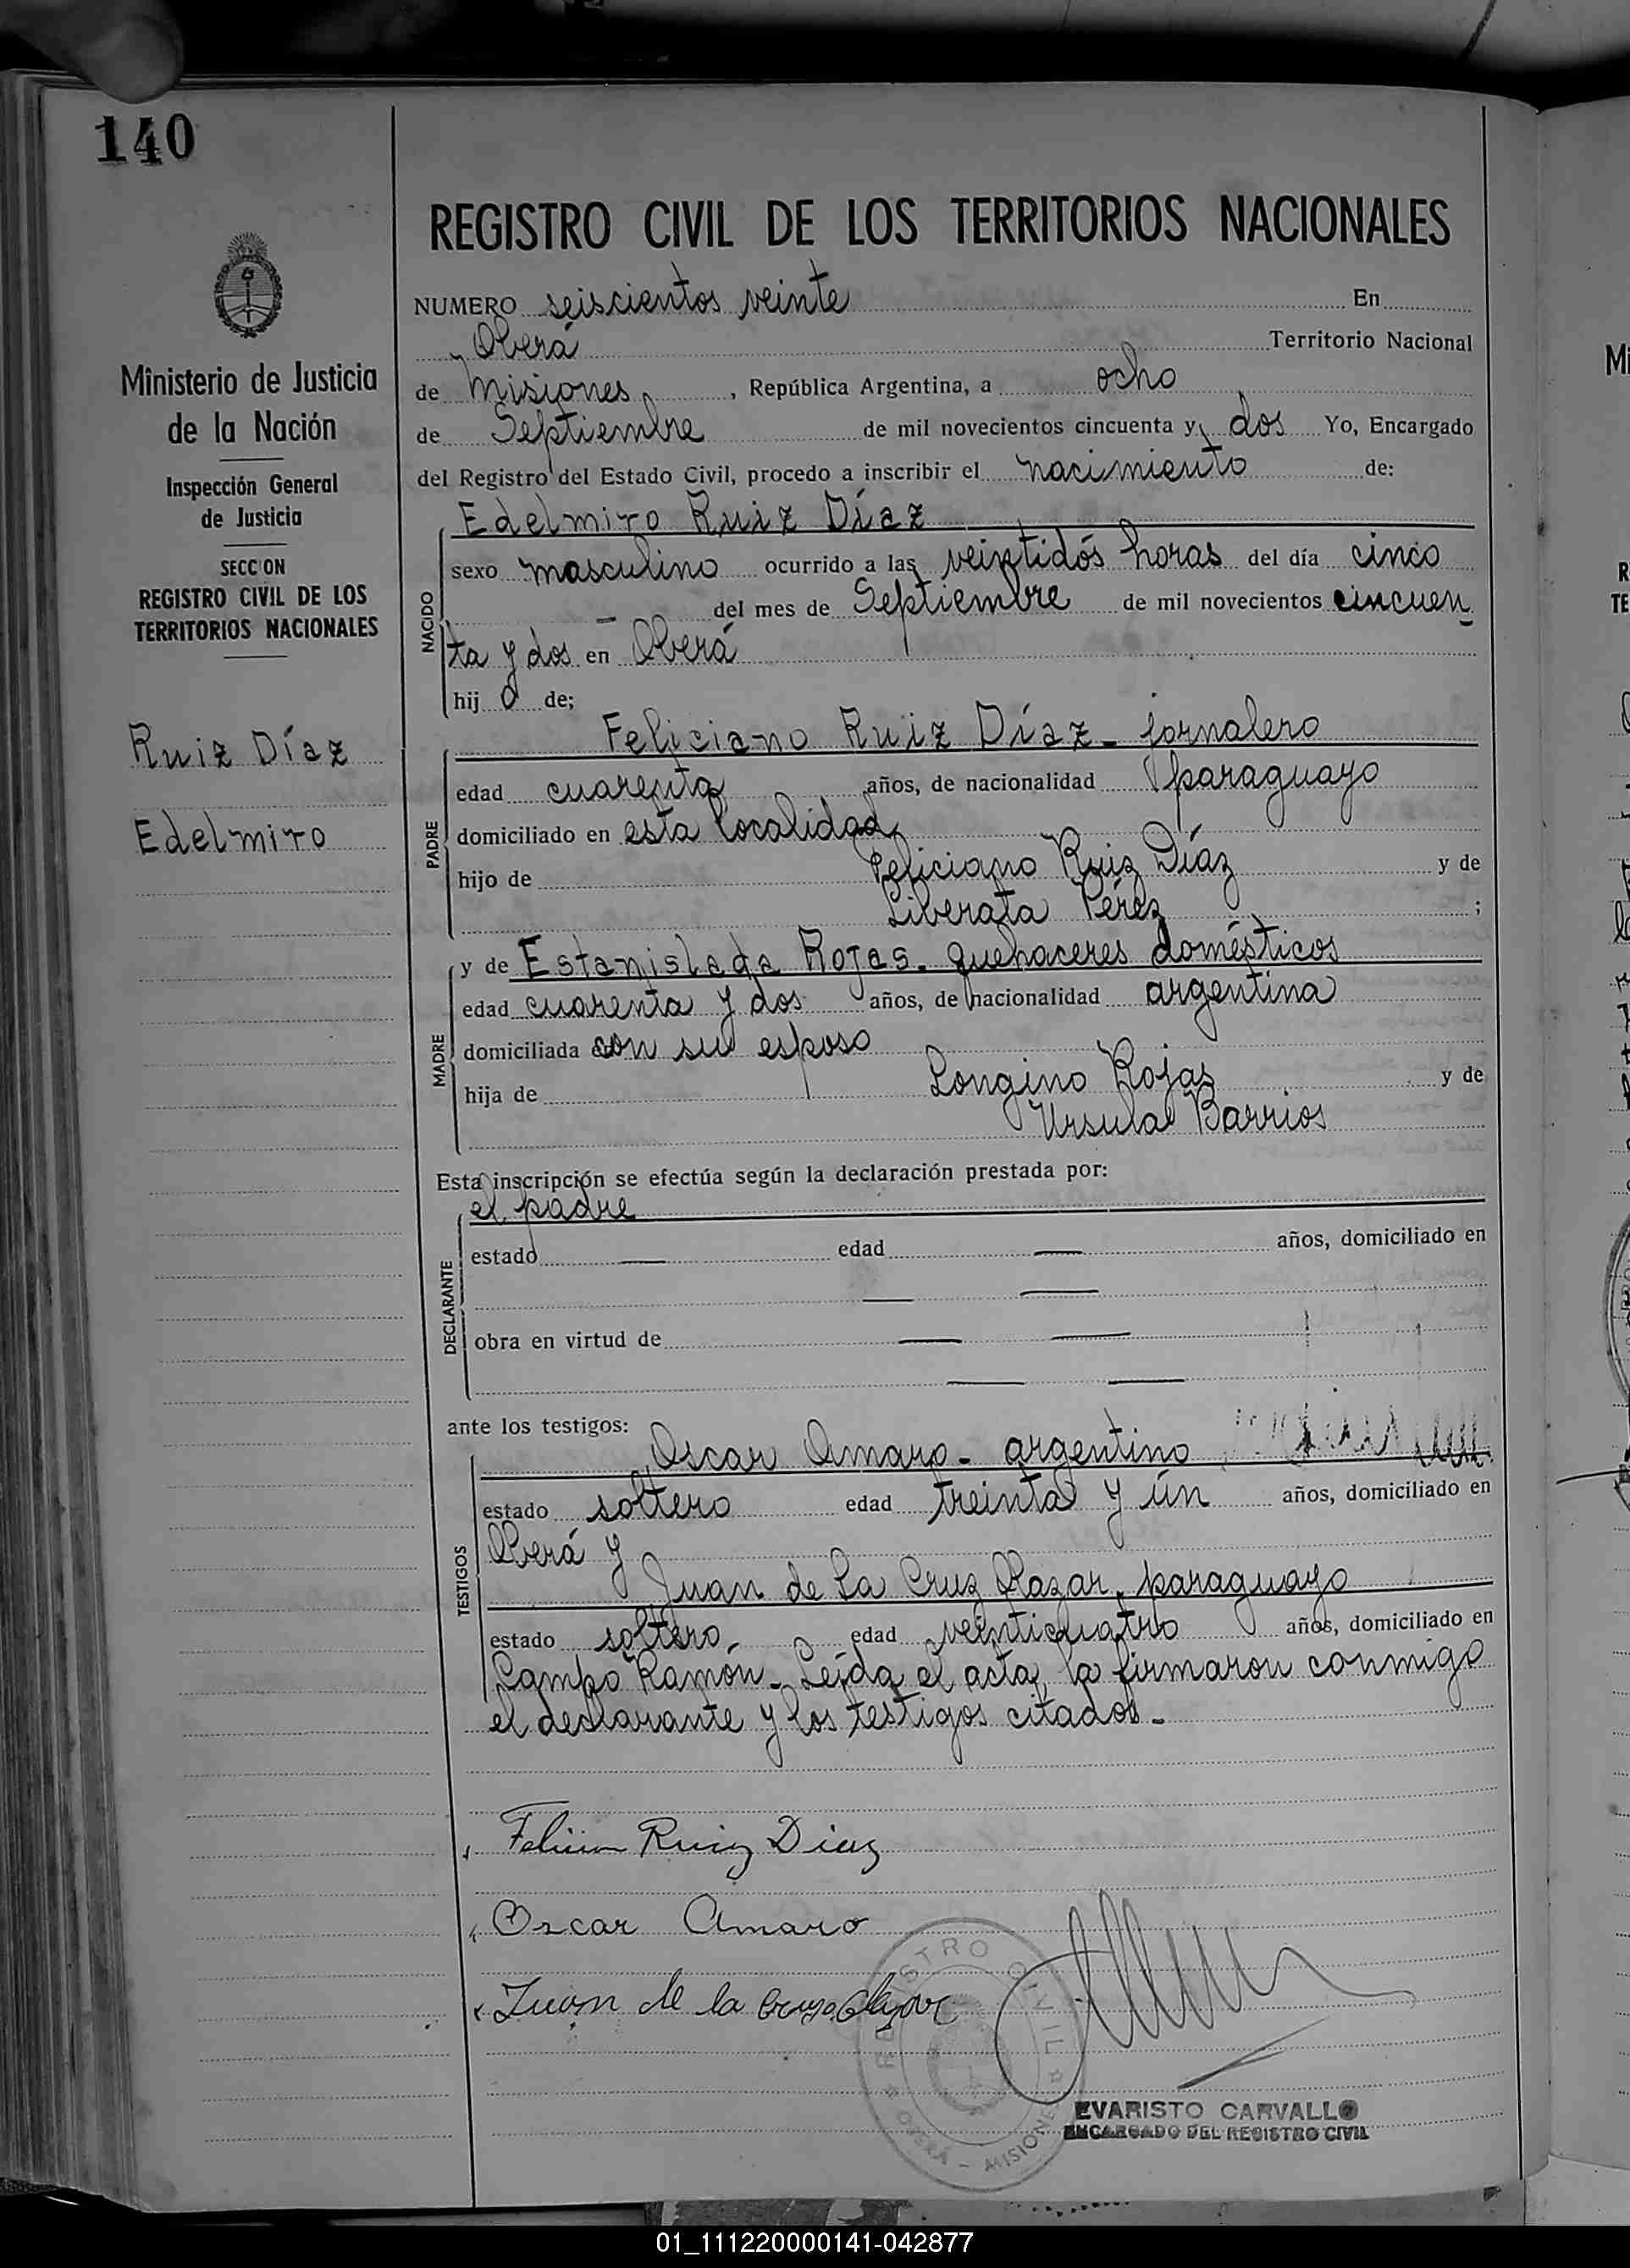 140
REGISTRO CIVIL DE LOS TERRITORIOS NACIONALES
NUMERO seiscientos veinte En
Oberá Territorio Nacional
de Misiones, República Argentina, a ocho
de Septiembre de mil novecientos cincuenta y dos Yo, Encargado
del Registro del Estado Civil, procedo a inscribir el nacimiento de:
Ministerio de Justicia
de la Nación
Inspección General
de Justicia
SECCION
REGISTRO CIVIL DE LOS
TERRITORIOS NACIONALES
Ruiz Díaz
Edelmiro
NACIDO
Edelmiro Ruiz Díaz
sexo masculino ocurrido a las veintidós horas del día cinco
— del mes de Septiembre de mil novecientos cincuen
ta y dos en Oberá
hij o de;
PADRE
Feliciano Ruiz Díaz - jornalero
edad cuarenta años, de nacionalidad paraguayo
domiciliado en esta localidad
hijo de Feliciano Ruiz Díaz y de
Liberata Pérez ;
MADRE
y de Estanislada Rojas - quehaceres domésticos
edad cuarenta y dos años, de nacionalidad argentina
domiciliada con su esposo
hija de Longino Rojas y de
Ursula Barrios
Esta inscripción se efectúa según la declaración prestada por:
DECLARANTE
el padre
estado — edad — años, domiciliado en
— —
obra en virtud de — —
— —
ante los testigos:
TESTIGOS
Oscar Amaro - argentino
estado soltero edad treinta y ún años, domiciliado en
Oberá y
Juan de La Cruz Olazar, paraguayo
estado soltero, edad veinticuatro años, domiciliado en
Campo Ramón - Leída el acta, la firmaron conmigo
el declarante y los testigos citados -
Ruiz Diaz
Oscar Amaro
Juan de la Cruz Olazar
REGISTRO CIVIL
OBERÁ - MISIONES
EVARISTO CARVALLO
ENCARGADO DEL REGISTRO CIVIL
01_111220000141-042877